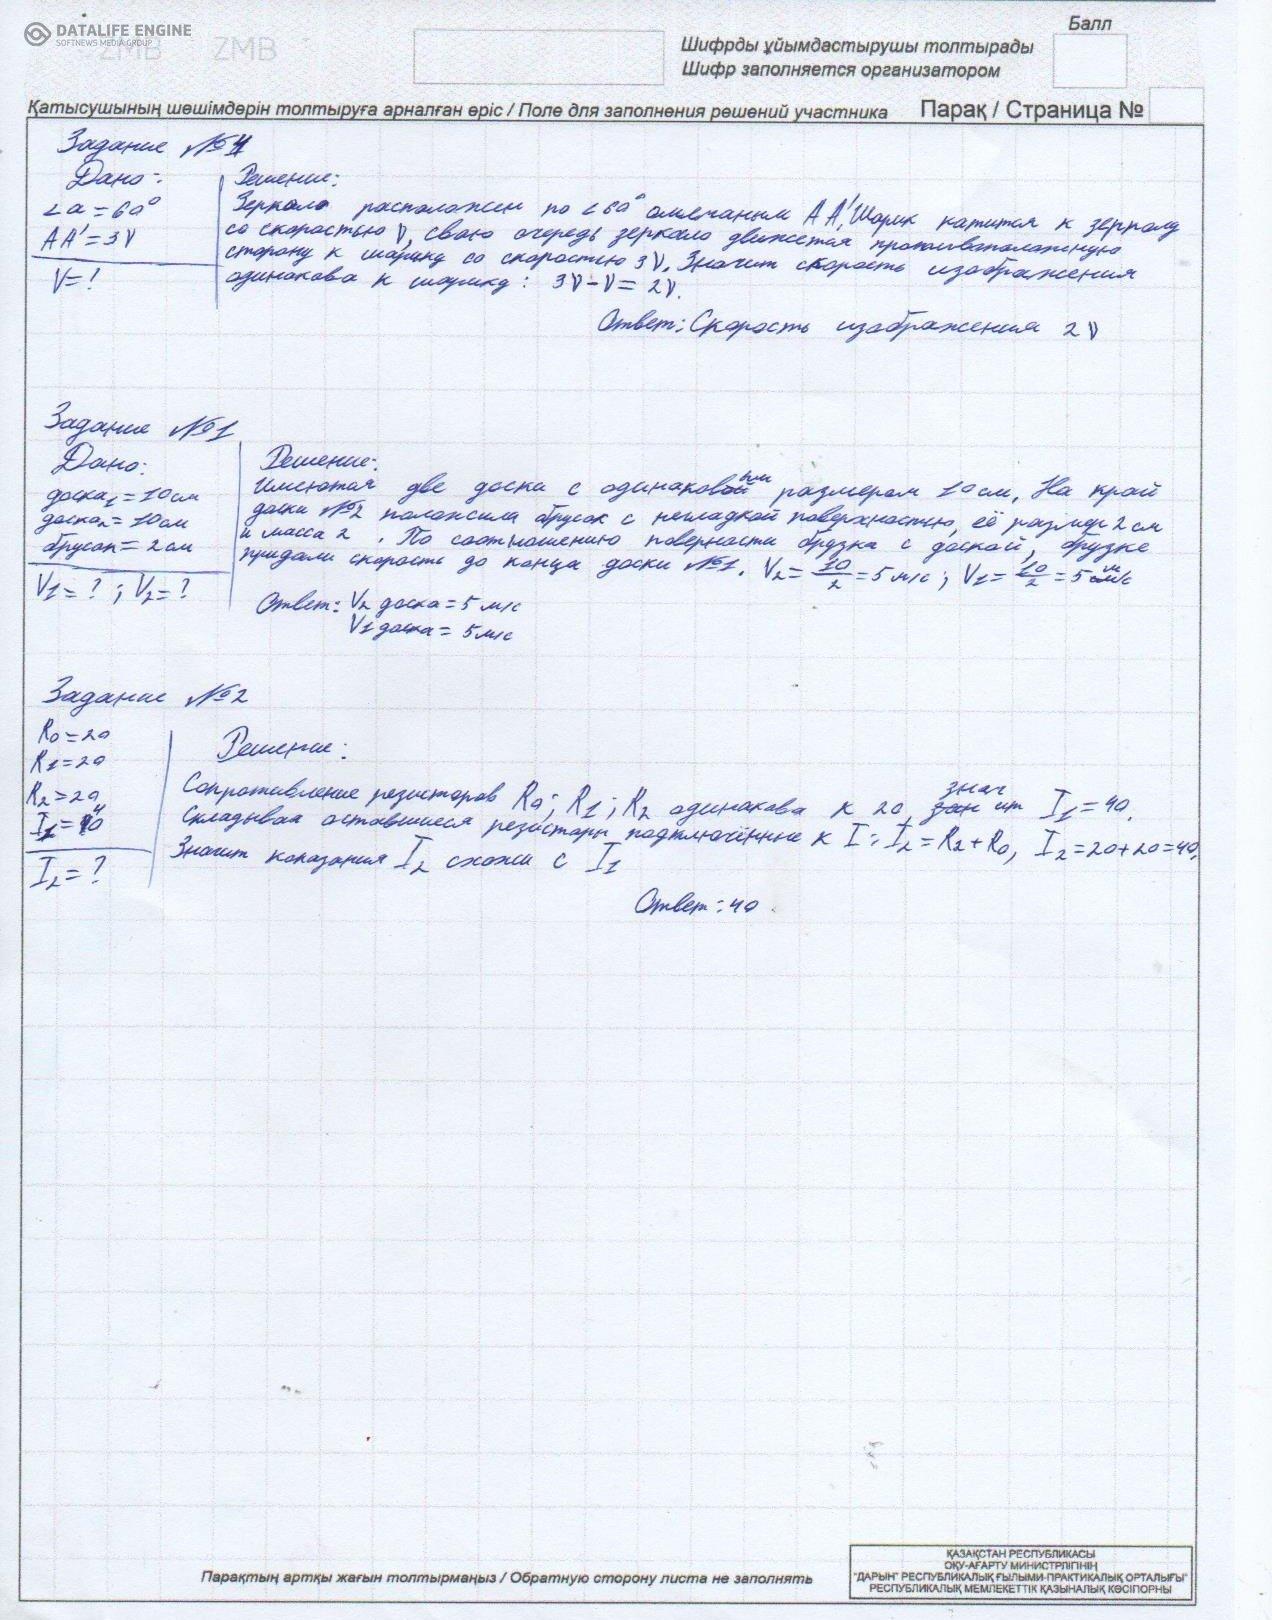 DATALIFE ENGINE
SOFTNEWS MEDIA GROUP
ZMB ZMB
Балл
Шифрды ұйымдастырушы толтырады
Шифр заполняется организатором
Қатысушының шешімдерін толтыруға арналған өріс / Поле для заполнения решений участника Парақ / Страница №
Задание №4
Дано: Решение:
∠a = 60°
AA' = 3V
V = ?
Зеркало расположен по ∠60° AA'. Шарик катится к зеркалу
со скоростью V, свою очередь зеркало движется противоположную
сторону к шарику со скоростью 3V. Значит скорость изображения
одинакова к шарику: 3V - V = 2V.
Ответ: Скорость изображения 2V
Задание №1
Дано: Решение:
доска₁ = 10 см
доска₂ = 10 см
брусок = 2 см
V₁ = ? ; V₂ = ?
Имеются две доски с одинаковым размером 10 см, На край
доски №2 положили брусок с негладкой поверхностью, её размер 2 см
и масса 2. По соотношению поверхности брузка с доской, брузке
придали скорость до конца доски №1. V₂ = 10/2 = 5 м/с ; V₁ = 10/2 = 5 м/с
Ответ: V₂ доска = 5 м/с
V₁ доска = 5 м/с
Задание №2
R₀ = 20
R₁ = 20
R₂ = 20
I₁ = 40
I₂ = ?
Решение:
Сопротивление резисторов R₀; R₁; R₂ одинакова к 20, значит I₁ = 40.
Складывая оставшиеся резисторы подключённые к I: I₂ = R₂ + R₀, I₂ = 20+20 = 40.
Значит показания I₂ схожи с I₁
Ответ: 40.
Парақтың артқы жағын толтырмаңыз / Обратную сторону листа не заполнять
ҚАЗАҚСТАН РЕСПУБЛИКАСЫ
ОҚУ-АҒАРТУ МИНИСТРЛІГІНІҢ
"ДАРЫН" РЕСПУБЛИКАЛЫҚ ҒЫЛЫМИ-ПРАКТИКАЛЫҚ ОРТАЛЫҒЫ"
РЕСПУБЛИКАЛЫҚ МЕМЛЕКЕТТІК ҚАЗЫНАЛЫҚ КӘСІПОРНЫ